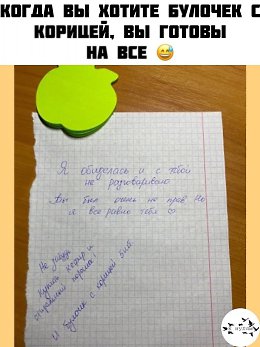 КОГДА ВЫ ХОТИТЕ БУЛОЧЕК С
КОРИЦЕЙ, ВЫ ГОТОВЫ
НА ВСЕ 😅
Я обиделась и с тобой
не разговариваю
Вы был очень не прав Но
я все равно тебя ♡
Не забудь
купить корм и
!
И булочек с корицей